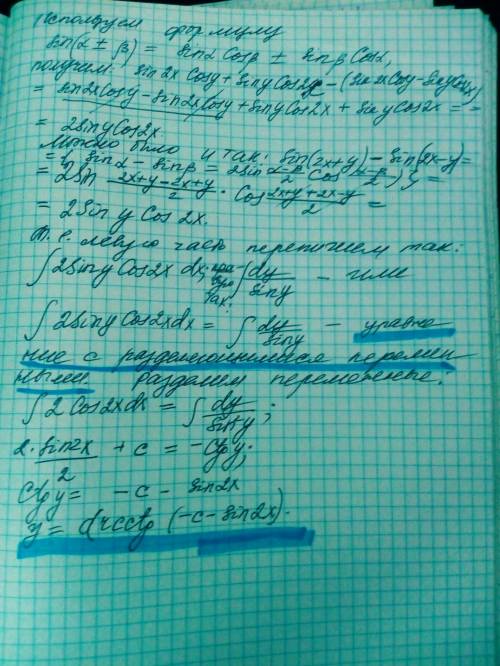 Используем формулу
sin(α ± β) = sinα Cosβ ± sinβ Cosα,
получим: sin2x Cosy + siny Cos2x - (sin2x Cosy - siny Cos2x)
= sin2x Cosy - sin2x Cosy + siny Cos2x + siny Cos2x =
= 2siny Cos2x.
Можно было и так: sin(2x+y) - sin(2x-y) =
= { sinα - sinβ = 2sin (α-β)/2 Cos (α+β)/2 } =
= 2sin (2x+y-2x+y)/2 · Cos (2x+y+2x-y)/2 =
= 2Sin y Cos 2x.
Т.е. левую часть перепишем так:
∫ 2siny Cos2x dx; ∫ dy/siny - или
так:
∫ 2siny Cos2x dx = ∫ dy/siny - уравне
ние с разделяющимися перемен
ными разделим переменные:
∫ 2 Cos2x dx = ∫ dy/sin²y;
2 · sin2x/2 + c = -Ctg y;
Ctg y = -c - sin2x
y = arcctg (-c - sin2x).